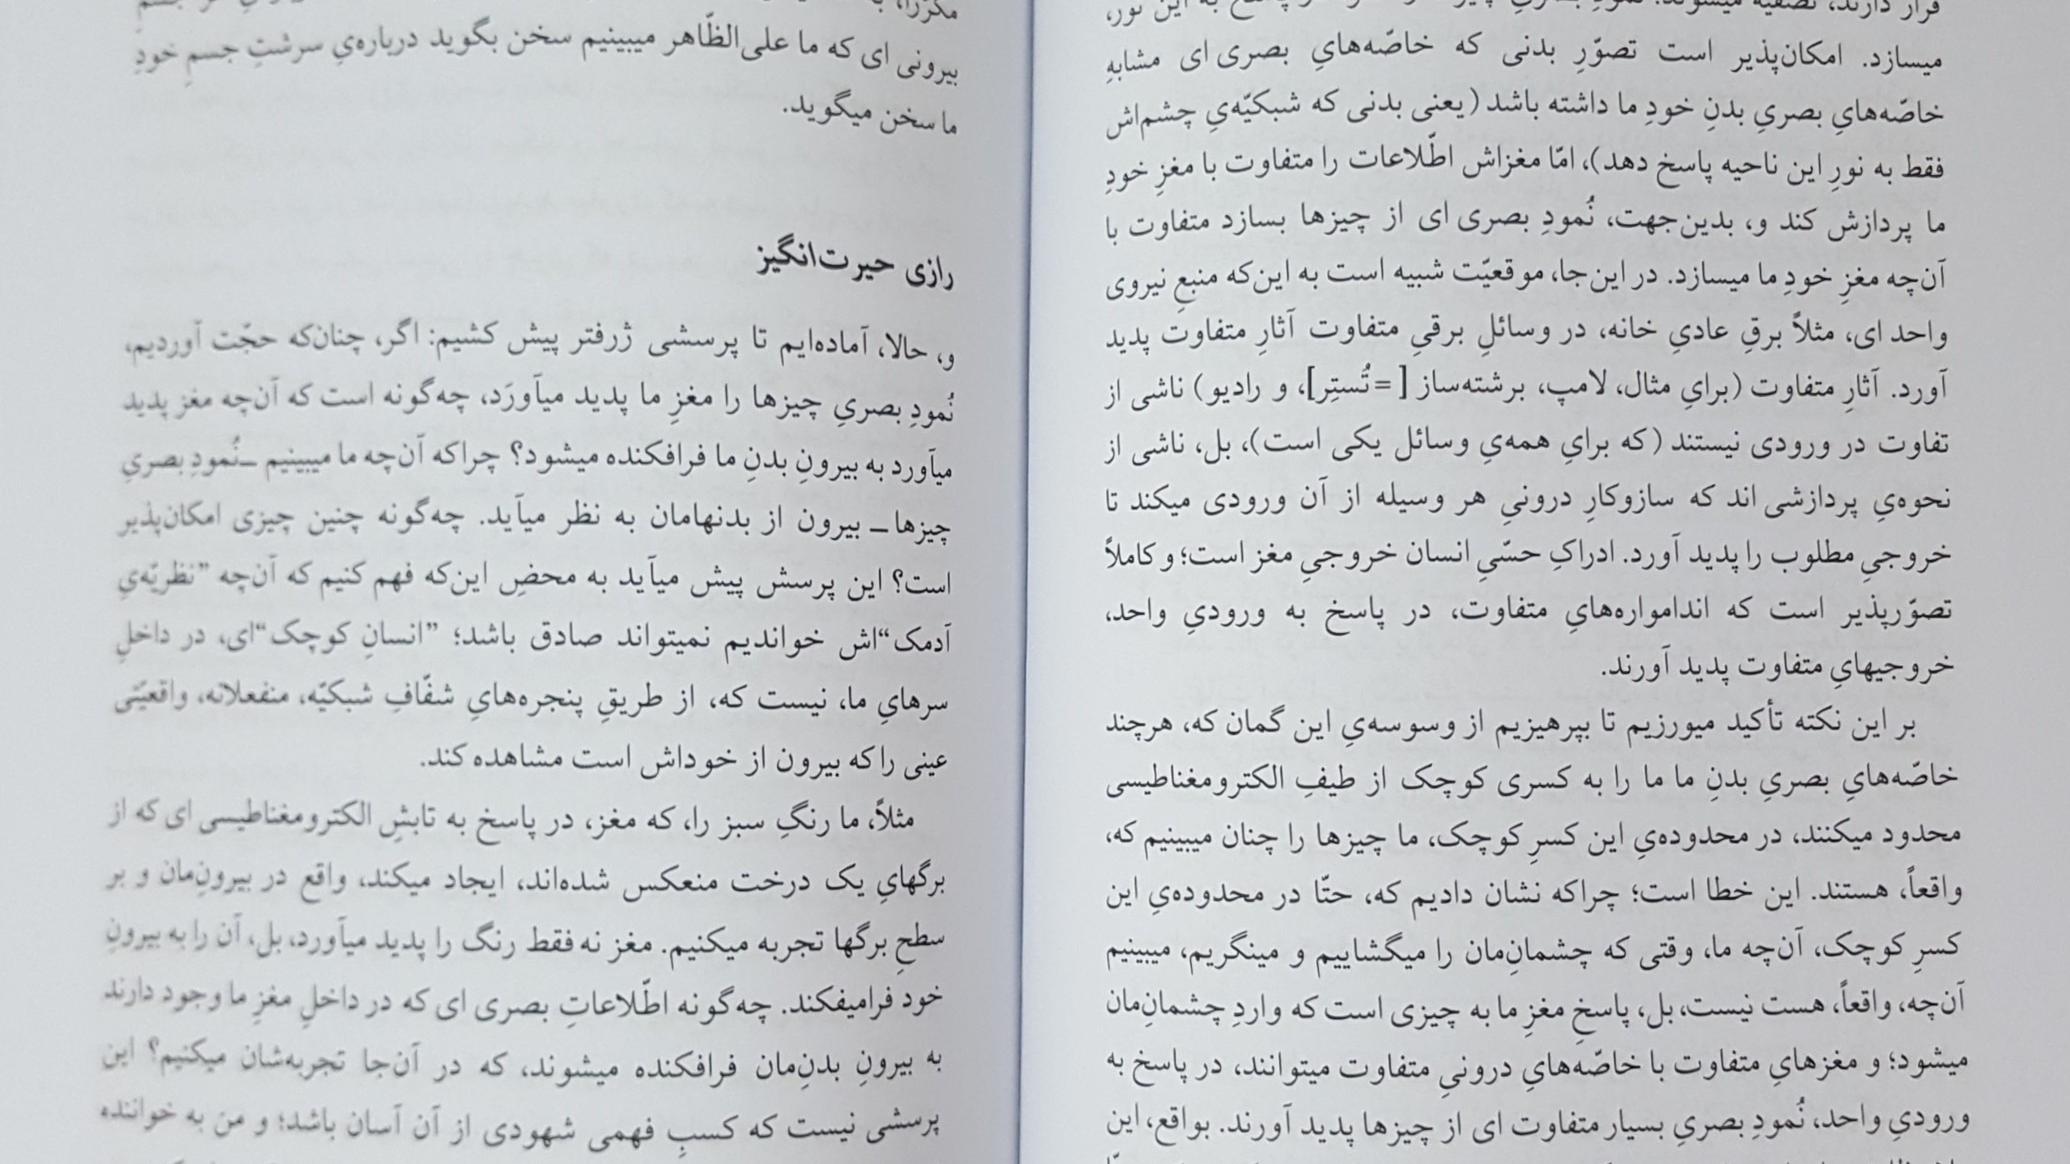 میسازد. امکان‌پذیر است تصوّرِ بدنی که خاصّه‌هایِ بصری ای مشابهِ
خاصّه‌هایِ بصریِ بدنِ خودِ ما داشته باشد (یعنی بدنی که شبکیّه‌یِ چشم‌اش
فقط به نورِ این ناحیه پاسخ دهد)، امّا مغزاش اطّلاعات را متفاوت با مغزِ خودِ
ما پردازش کند و، بدین‌جهت، نُمودِ بصری ای از چیزها بسازد متفاوت با
آن‌چه مغزِ خودِ ما میسازد. در این‌جا، موقعیّت شبیه است به این‌که منبعِ نیروی
واحد ای، مثلاً برقِ عادیِ خانه، در وسائلِ برقیِ متفاوت آثارِ متفاوت پدید
آورد. آثارِ متفاوت (برایِ مثال، لامپ، برشته‌ساز [=تُستِر]، و رادیو) ناشی از
تفاوت در ورودی نیستند (که برایِ همه‌یِ وسائل یکی است)، بل، ناشی از
نحوه‌یِ پردازشی اند که سازوکارِ درونیِ هر وسیله از آن ورودی میکند تا
خروجیِ مطلوب را پدید آورد. ادراکِ حسّیِ انسان خروجیِ مغز است؛ و کاملاً
تصوّرپذیر است که اندامواره‌هایِ متفاوت، در پاسخ به ورودیِ واحد،
خروجیهایِ متفاوت پدید آورند.
بر این نکته تأکید میورزیم تا بپرهیزیم از وسوسه‌یِ این گمان که، هرچند
خاصّه‌هایِ بصریِ بدنِ ما ما را به کسری کوچک از طیفِ الکترومغناطیسی
محدود میکنند، در محدوده‌یِ این کسرِ کوچک، ما چیزها را چنان میبینیم که،
واقعاً، هستند. این خطا است؛ چراکه نشان دادیم که، حتّا در محدوده‌یِ این
کسرِ کوچک، آن‌چه ما، وقتی که چشمانِ‌مان را میگشاییم و مینگریم، میبینیم
آن‌چه، واقعاً، هست نیست، بل، پاسخِ مغزِ ما به چیزی است که واردِ چشمانِ‌مان
میشود؛ و مغزهایِ متفاوت با خاصّه‌هایِ درونیِ متفاوت میتوانند، در پاسخ به
ورودیِ واحد، نُمودِ بصریِ بسیار متفاوت ای از چیزها پدید آورند. بواقع، این
بیرونی ای که ما علی‌الظّاهر میبینیم سخن بگوید درباره‌یِ سرشتِ جسمِ خودِ
ما سخن میگوید.
رازی حیرت‌انگیز
و، حالا، آماده‌ایم تا پرسشی ژرفتر پیش کشیم: اگر، چنان‌که حجّت آوردیم،
نُمودِ بصریِ چیزها را مغزِ ما پدید میآورَد، چه‌گونه است که آن‌چه مغز پدید
میآورد به بیرونِ بدنِ ما فرافکنده میشود؟ چراکه آن‌چه ما میبینیم ـ‌نُمودِ بصریِ
چیزها‌ ـ بیرون از بدنهامان به نظر میآید. چه‌گونه چنین چیزی امکان‌پذیر
است؟ این پرسش پیش میآید به محضِ این‌که فهم کنیم که آن‌چه ”نظریّه‌یِ
آدمک“اش خواندیم نمیتواند صادق باشد؛ ”انسانِ کوچک“ای، در داخلِ
سرهایِ ما، نیست که، از طریقِ پنجره‌هایِ شفّافِ شبکیّه، منفعلانه، واقعیّتی
عینی را که بیرون از خوداش است مشاهده کند.
مثلاً، ما رنگِ سبز را، که مغز، در پاسخ به تابشِ الکترومغناطیسی ای که از
برگهایِ یک درخت منعکس شده‌اند، ایجاد میکند، واقع در بیرونِ‌مان و بر
سطحِ برگها تجربه میکنیم. مغز نه فقط رنگ را پدید میآورد، بل، آن را به بیرونِ
خود فرامیفکند. چه‌گونه اطّلاعاتِ بصری ای که در داخلِ مغزِ ما وجود دارند
به بیرونِ بدنِ‌مان فرافکنده میشوند، که در آن‌جا تجربه‌شان میکنیم؟ این
پرسشی نیست که کسبِ فهمی شهودی از آن آسان باشد؛ و من به خواننده